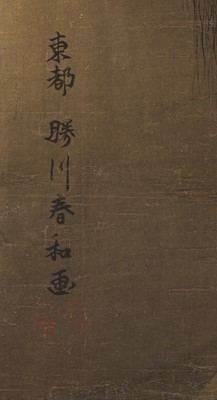 東都 勝川春和画